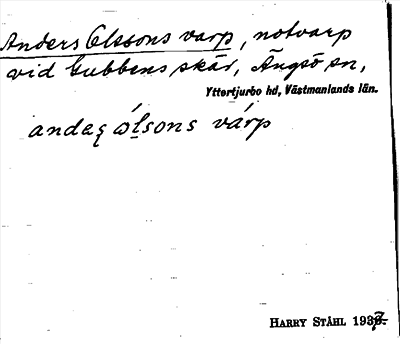 Anders Olssons varp, notvarp
vid Gubbens skär, Ängsö sn,
Yttertjurbo hd, Västmanlands län.
andaʂ ólsons várp
HARRY STÅHL 1937.